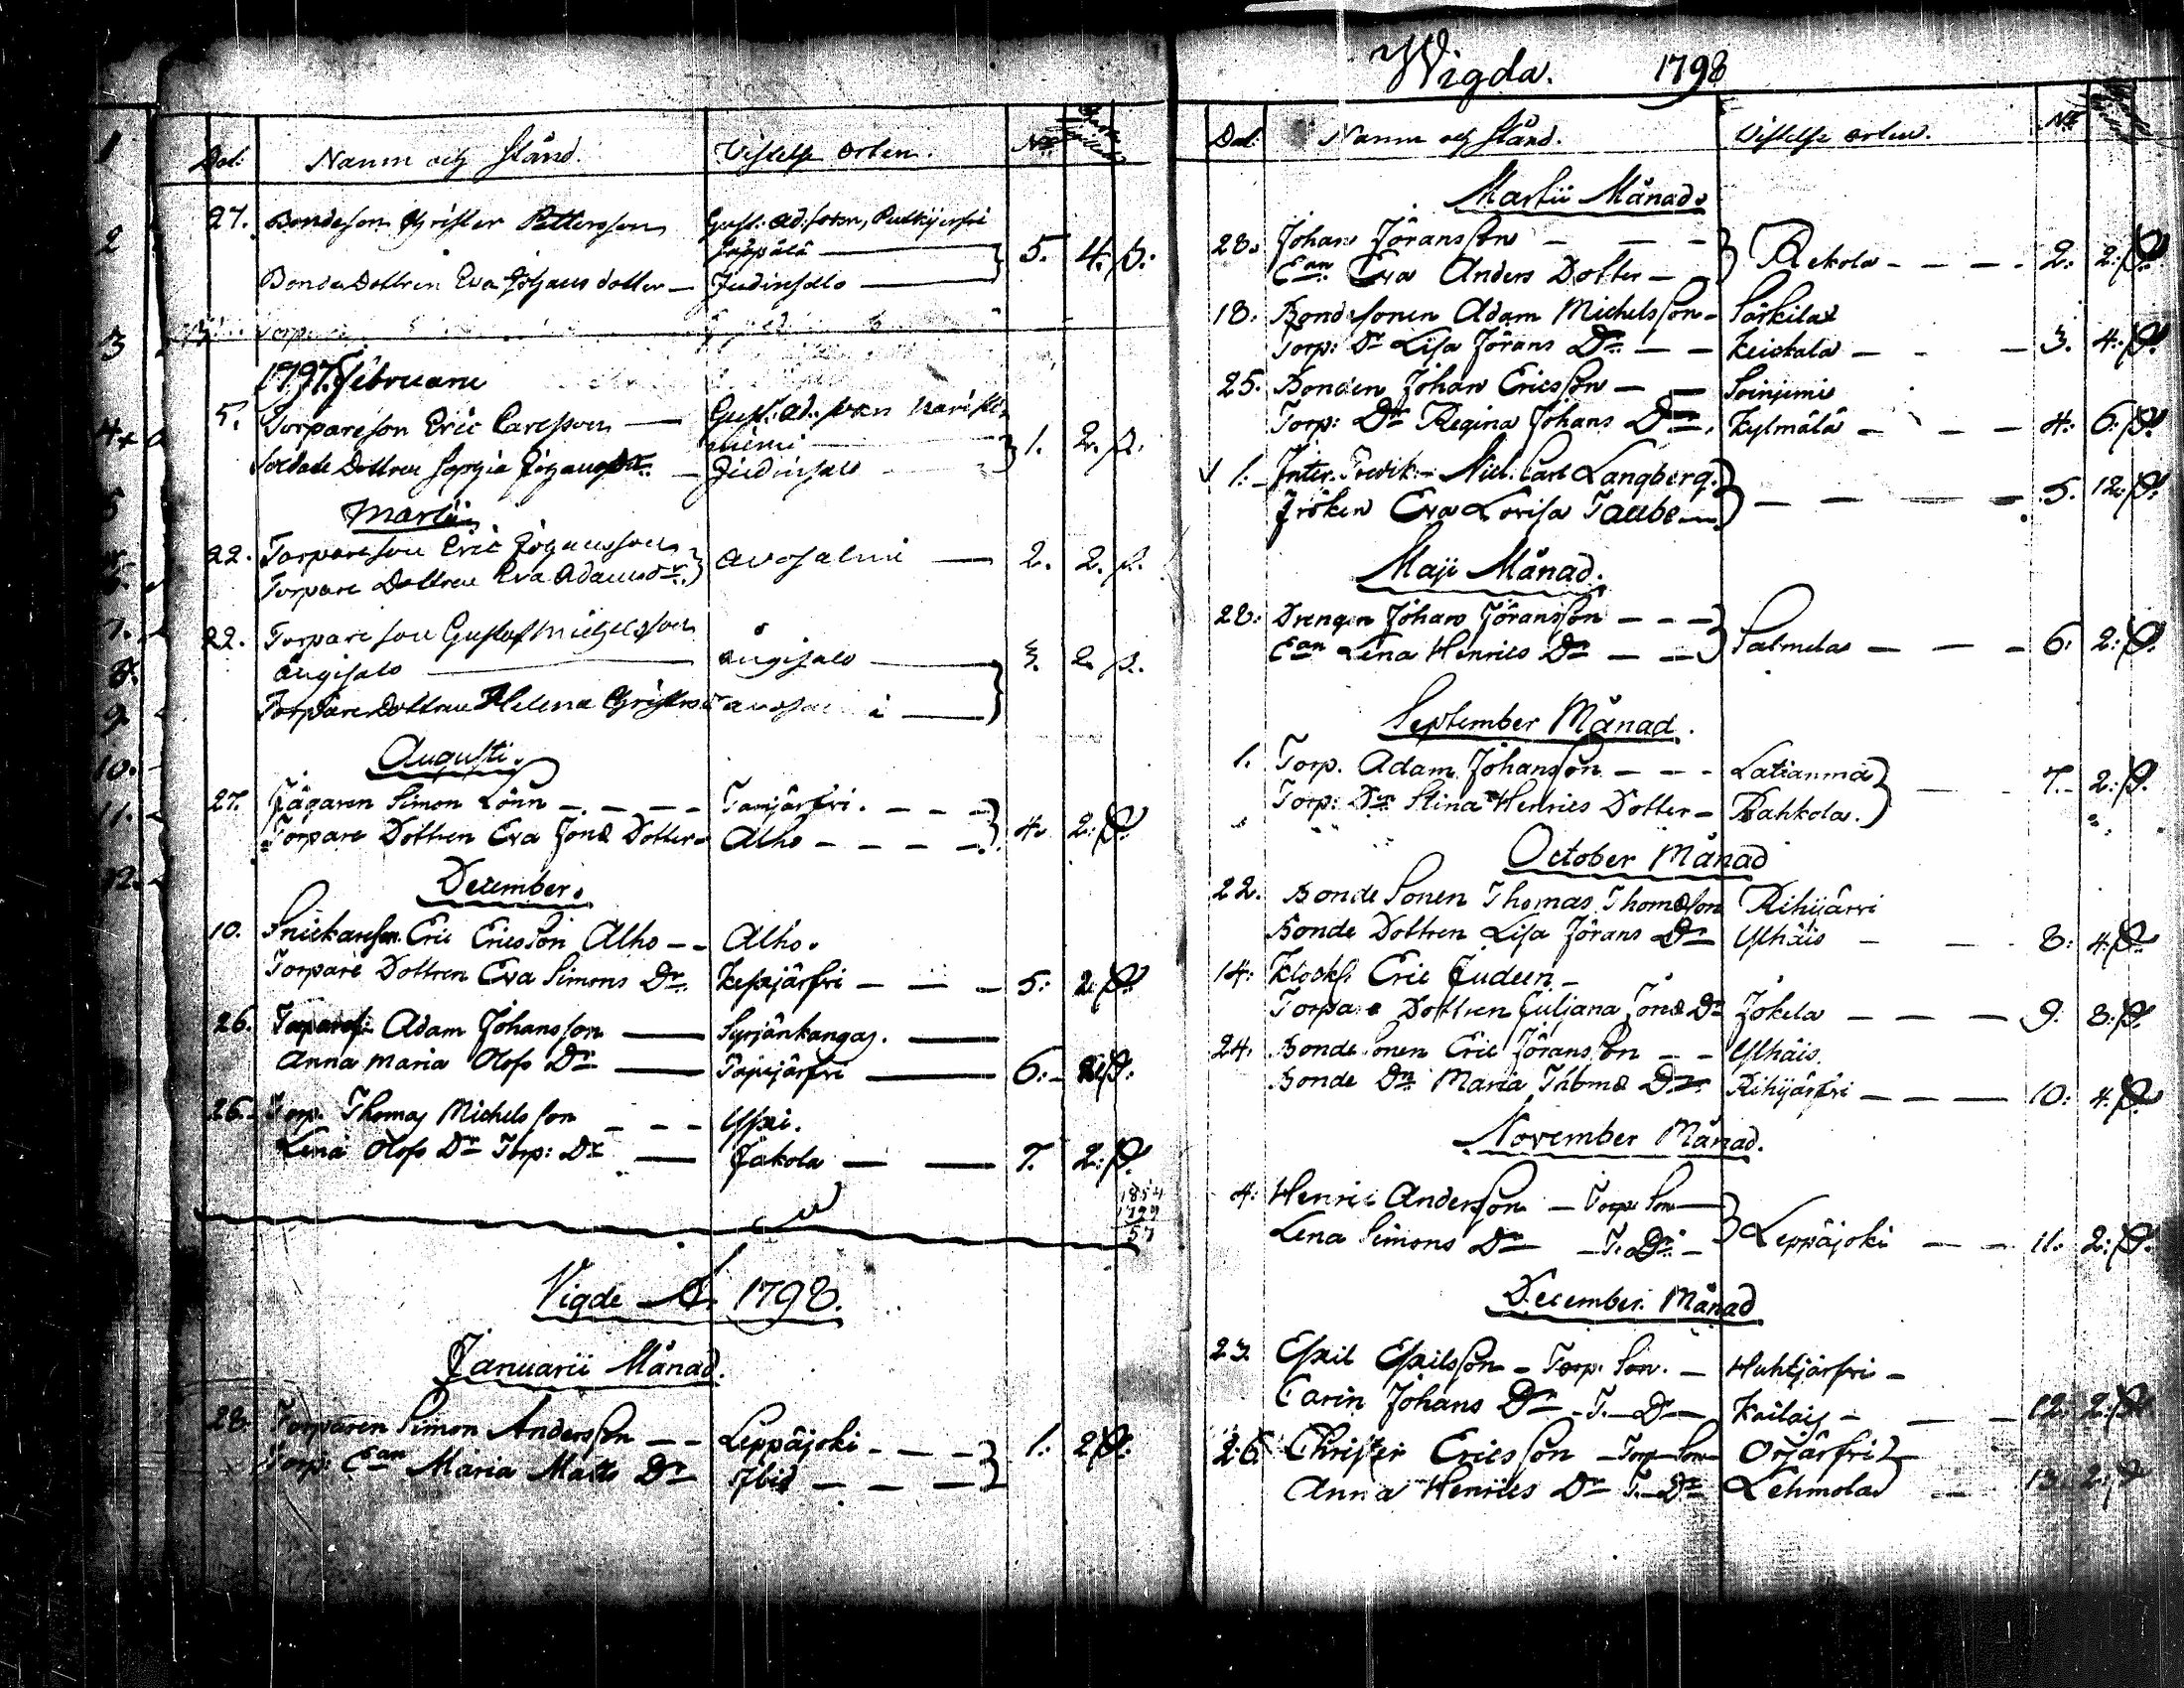 Dat: Namn och Stånd. Vistelse orten. No
27. Bondeson Christer Pettersson Gust: Ad: sokn, Putkijerfvi
Jäppälä 5. 4. ß.
Bonde Dottren Eva Johans dotter — Judinsalo —
1797. Februarii
5. Torpareson Eric Carlsson — Gust: Ad: sokn
niemi 1. 2. ß.
Soldate Dottren Sophia Johans Dr — Judinsalo
Martii
22. Torpareson Eric Johansson Avosalmi — 2. 2. ß.
Torpare Dottren Eva Adams Dr.
22. Torpareson Gustaf Michelsson
Ängisalo — Ängisalo — 3. 2. ß.
Torpare Dottren Helena Christers
Augusti.
27. Jägaren Simon Lönn — — — Tarijärfvi. — — —
Torpare Dottren Eva Jonæ Dotter — Alho — — — — 4. 2: ß.
December.
10. Snickareson Eric Ericsson Alho — — Alho.
Torpare Dottren Eva Simons Dr. Kepsjärfvi — — — 5: 2: ß.
26. Torpares: Adam Johansson — Syrjänkangas. —
Anna Maria Olofs Dr — Papijärfvi — 6: 2: ß:
26. Torp. Thomas Michelsson — — — Yski.
Lena Olofs Dr Torp: Dr — Jakola — — 7. 2: ß.
1854
1799
57
Vigde Åh 1798.
Januarii Månad.
28. Torparen Simon Andersson — — Leppäjoki — — —
Torp: Ean Maria Matts Dr Ibid — — — 1: 2: ß.
Wigda. 1798
Dat: Namn och Stånd. Vistelse orten. No
Martii Månad.
28. Johan Jöransson — — —
Ean Eva Anders Dotter — Rekola — — — 2: 2: ß.
18. Bondesonen Adam Michelsson — Särkilax
Torp: Dr Lisa Jörans Dr — — Keiskala — — — 3. 4: ß.
25. Bonden Johan Ericsson — — Soinjemi
Torp: Dr Regina Johans Dr —. Kylmälä — — — 4: 6: ß.
1. Inter. Predik: — Niel. Carl Langberg.
Fröken Eva Lovisa Taube — — — — — 5. 12: ß.
Maji Månad.
28: Drengen Johan Jöransson — — —
Ean Lena Henrics Dr — — Salmela — — — 6: 2: ß.
September Månad.
1. Torp. Adam Johansson — — — Latianmä
Torp: Dr. Stina Henrics Dotter — Rahkola. — — 7. 2: ß.
October Månad
22. Bonde Sonen Thomas Thomæson Rihijärvi
Bonde Dottren Lisa Jörans Dr Ylhäis — — — 8: 4: ß.
14: Klocks: Eric Judeen —
Torpare Dottren Juliana Jonæ Dr Jokela — — — 9: 8: ß.
24. Bonde Sonen Eric Jöransson — — Ylhäis
Bonde Dr Maria Thomæ Dr Rihijärfvi — — — 10: 4: ß.
November Månad.
4: Henric Andersson — Torp: Son —
Lena Simons Dr — T. Dr. — Leppäjoki — — 11: 2: ß.
December Månad
23. Eskil Eskilsson — Torp: Son. — Huhtjärfvi —
Carin Johans Dr — T. — Dr — Kailais — — — 12: 2: ß.
26. Christer Ericsson — Torp Son Orjärfvi
Anna Henrics Dr T. — Dr Lehmola — 13. 2: ß
1
2
3
4
5
7.
8.
9
10.
11.
12.